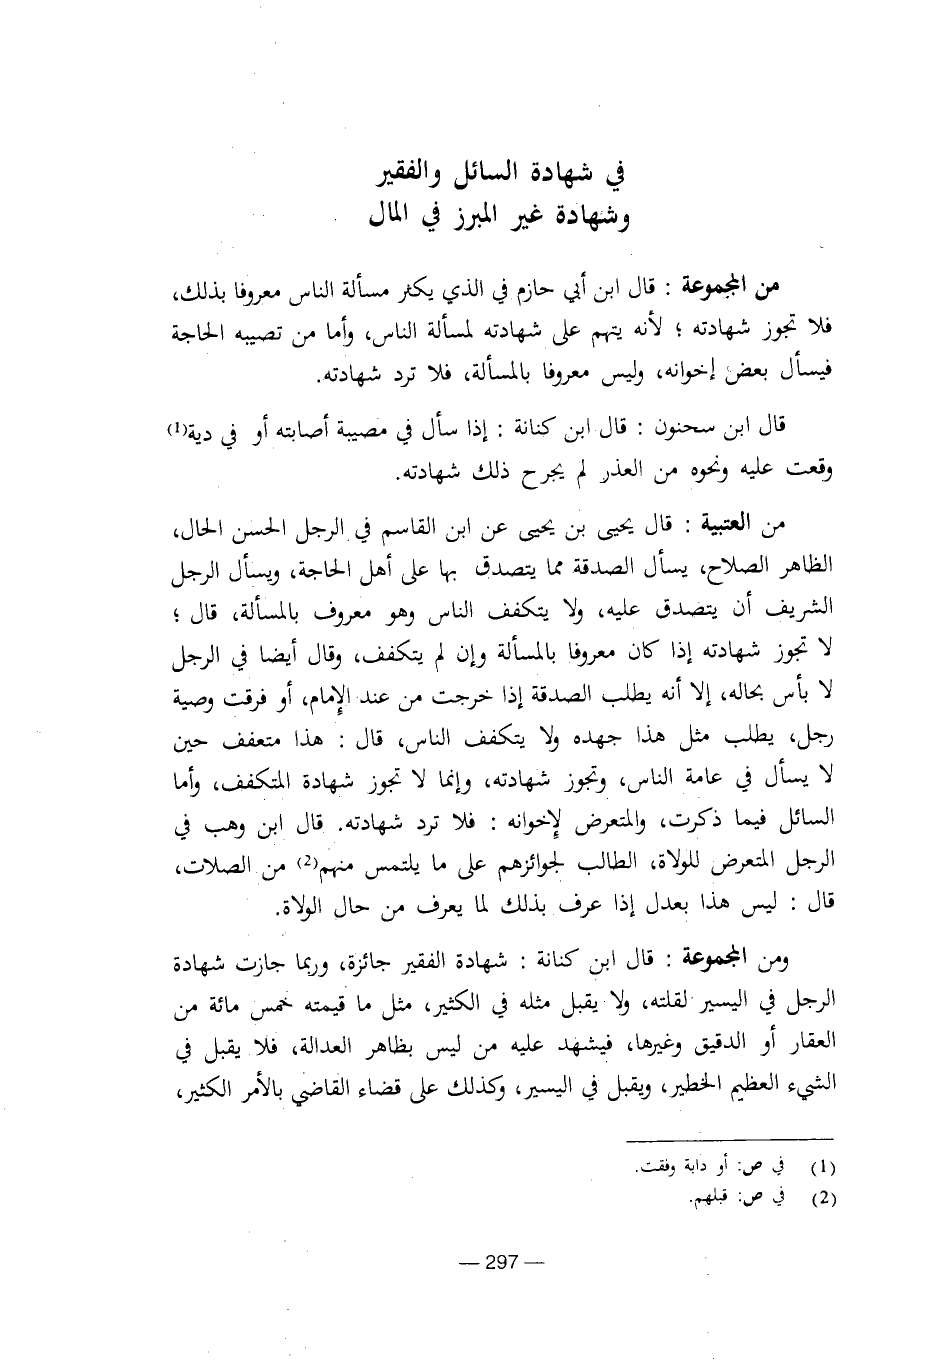 في شهادة السائل والفقير
وشهادة غير المبرز في المال
من المجموعة : قال ابن أبي حازم في الذي يكثر مسألة الناس معروفا بذلك،
فلا تجوز شهادته ؛ لأنه يتهم على شهادته لمسألة الناس، وأما من تصيبه الحاجة
فيسأل بعض إخوانه، وليس معروفا بالمسألة، فلا ترد شهادته.
قال ابن سحنون : قال ابن كنانة : إذا سأل في مصيبة أصابته أو في دية(1)
وقعت عليه ونحوه من العذر لم يجرح ذلك شهادته.
من العتبية : قال يحيى بن يحيى عن ابن القاسم في الرجل الحسن الحال،
الظاهر الصلاح، يسأل الصدقة مما يتصدق بها على أهل الحاجة، ويسأل الرجل
الشريف أن يتصدق عليه، ولا يتكفف الناس وهو معروف بالمسألة، قال ؛
لا تجوز شهادته إذا كان معروفا بالمسألة وإن لم يتكفف، وقال أيضا في الرجل
لا بأس بحاله، إلا أنه يطلب الصدقة إذا خرجت من عند الإمام، أو فرقت وصية
رجل، يطلب مثل هذا جهده ولا يتكفف الناس، قال : هذا متعفف حين
لا يسأل في عامة الناس، وتجوز شهادته، وإنما لا تجوز شهادة المتكفف، وأما
السائل فيما ذكرت، والمتعرض لإخوانه : فلا ترد شهادته. قال ابن وهب في
الرجل المتعرض للولاة، الطالب لجوائزهم على ما يلتمس منهم(2) من الصلات،
قال : ليس هذا بعدل إذا عرف بذلك لما يعرف من حال الولاة.
ومن المجموعة : قال ابن كنانة : شهادة الفقير جائزة، وربما جازت شهادة
الرجل في اليسير لقلته، ولا يقبل مثله في الكثير، مثل ما قيمته خمس مائة من
العقار أو الدقيق وغيرها، فيشهد عليه من ليس بظاهر العدالة، فلا يقبل في
الشيء العظيم الخطير، ويقبل في اليسير، وكذلك على قضاء القاضي بالأمر الكثير،
(1) في ص: أو دابة وفقت.
(2) في ص: قبلهم.
— 297 —